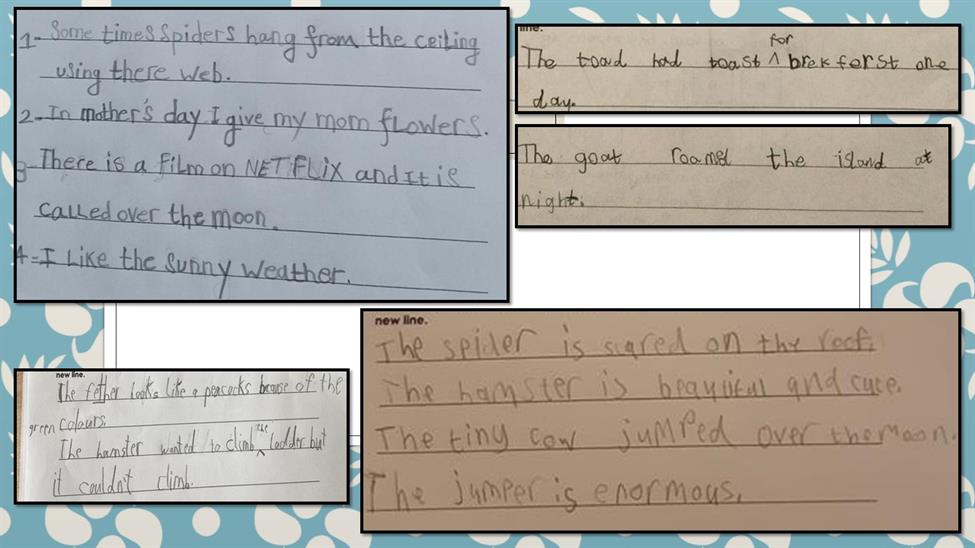 1- Some times Spiders hang from the ceiling
using there web.
2- In mother's day I give my mom flowers.
3 There is a film on NETFLiX and It is
called over the moon.
4- I Like the Sunny Weather.
line.
for
The toad had toast ^ brekferst one
day.
The goat roamed the island at
night.
new line.
The fether looks like a peacocks becuse of the
green colours.
the
The hamster wanted to climb ^ ladder but
it couldn't climb.
new line.
The spider is scared on the roof.
The hamster is beautiful and cute.
The tiny cow jumped over the Moon.
The jumper is enormous.